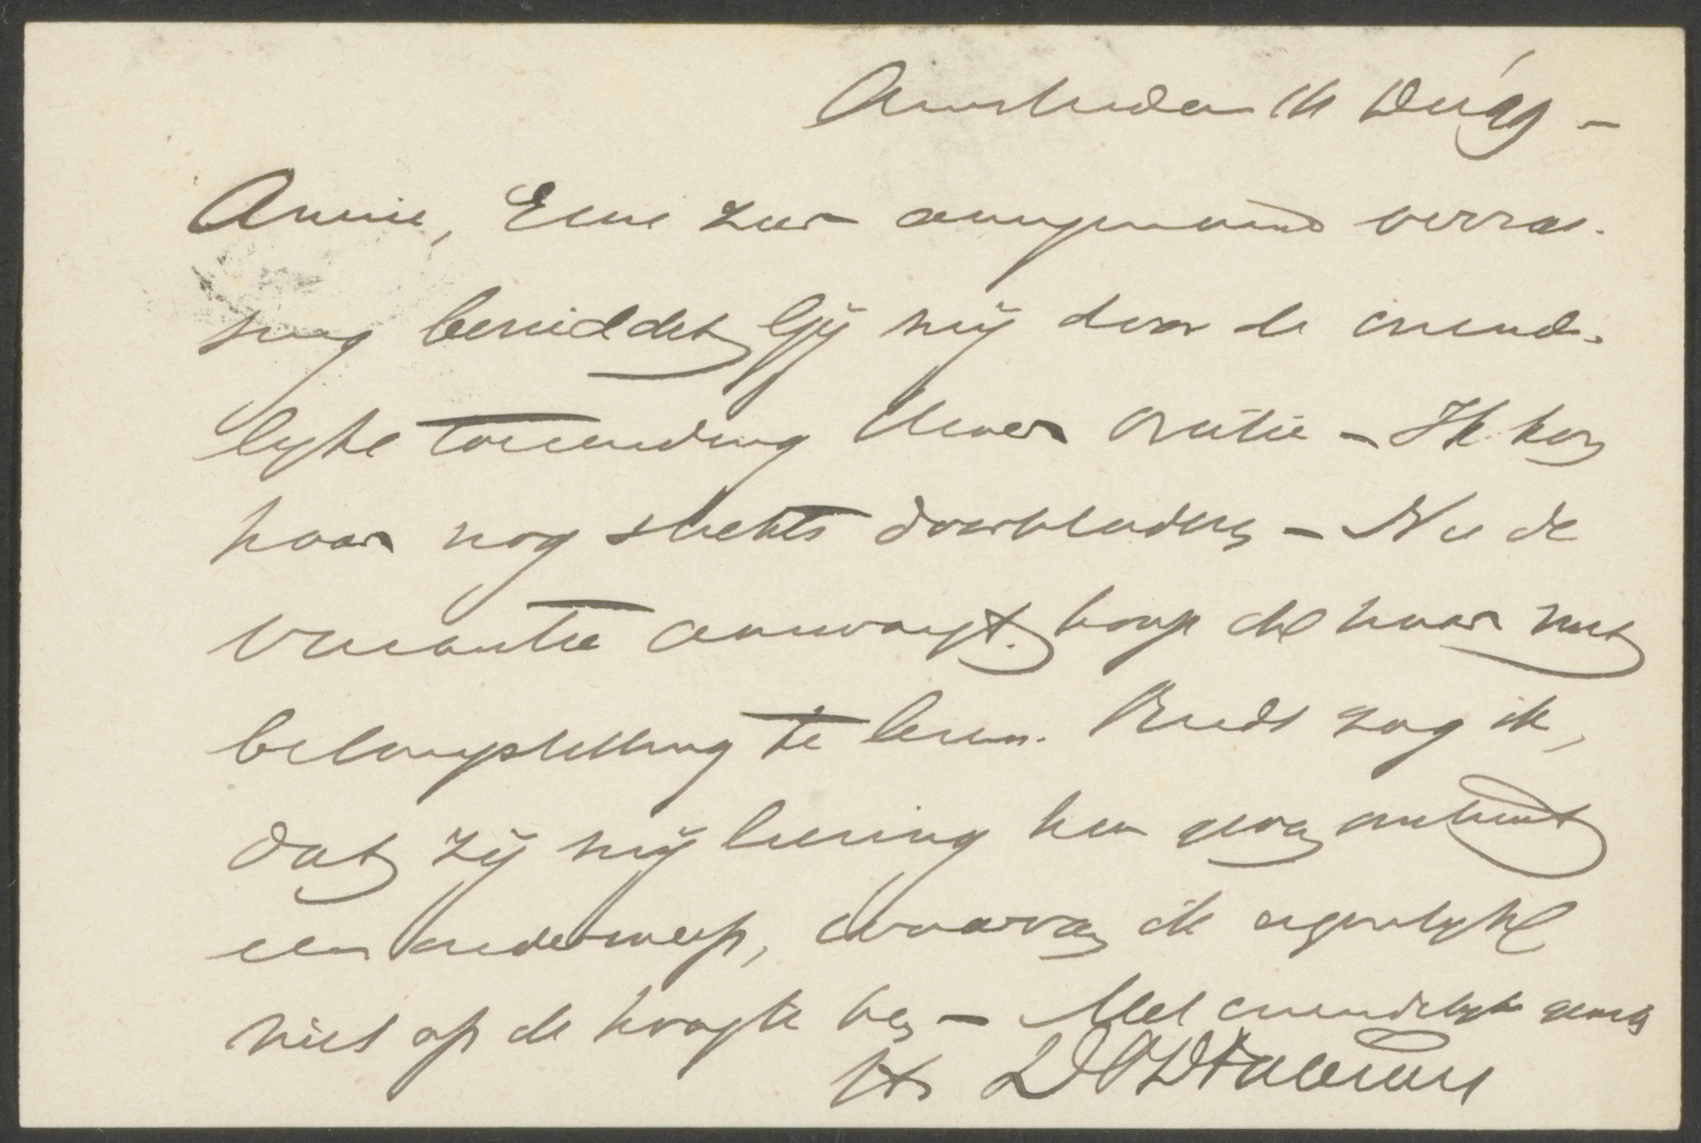 Amsterdam 16 Dec
Amice, Eene zeer aangename verras-
sing bereiddet Gij mij door de vriend-
lijke toezending Uwer Oratie - Ik kon
haar nog slechts doorbladeren - Nu de
vacantie aanvangt, hoop ik haar met
belangstelling te lezen. Reeds zag ik,
dat zij mij leering kan geven omtrent
een onderwerp, waarvan ik eigenlijk
niet op de hoogte ben - Met vriendelijke groeten